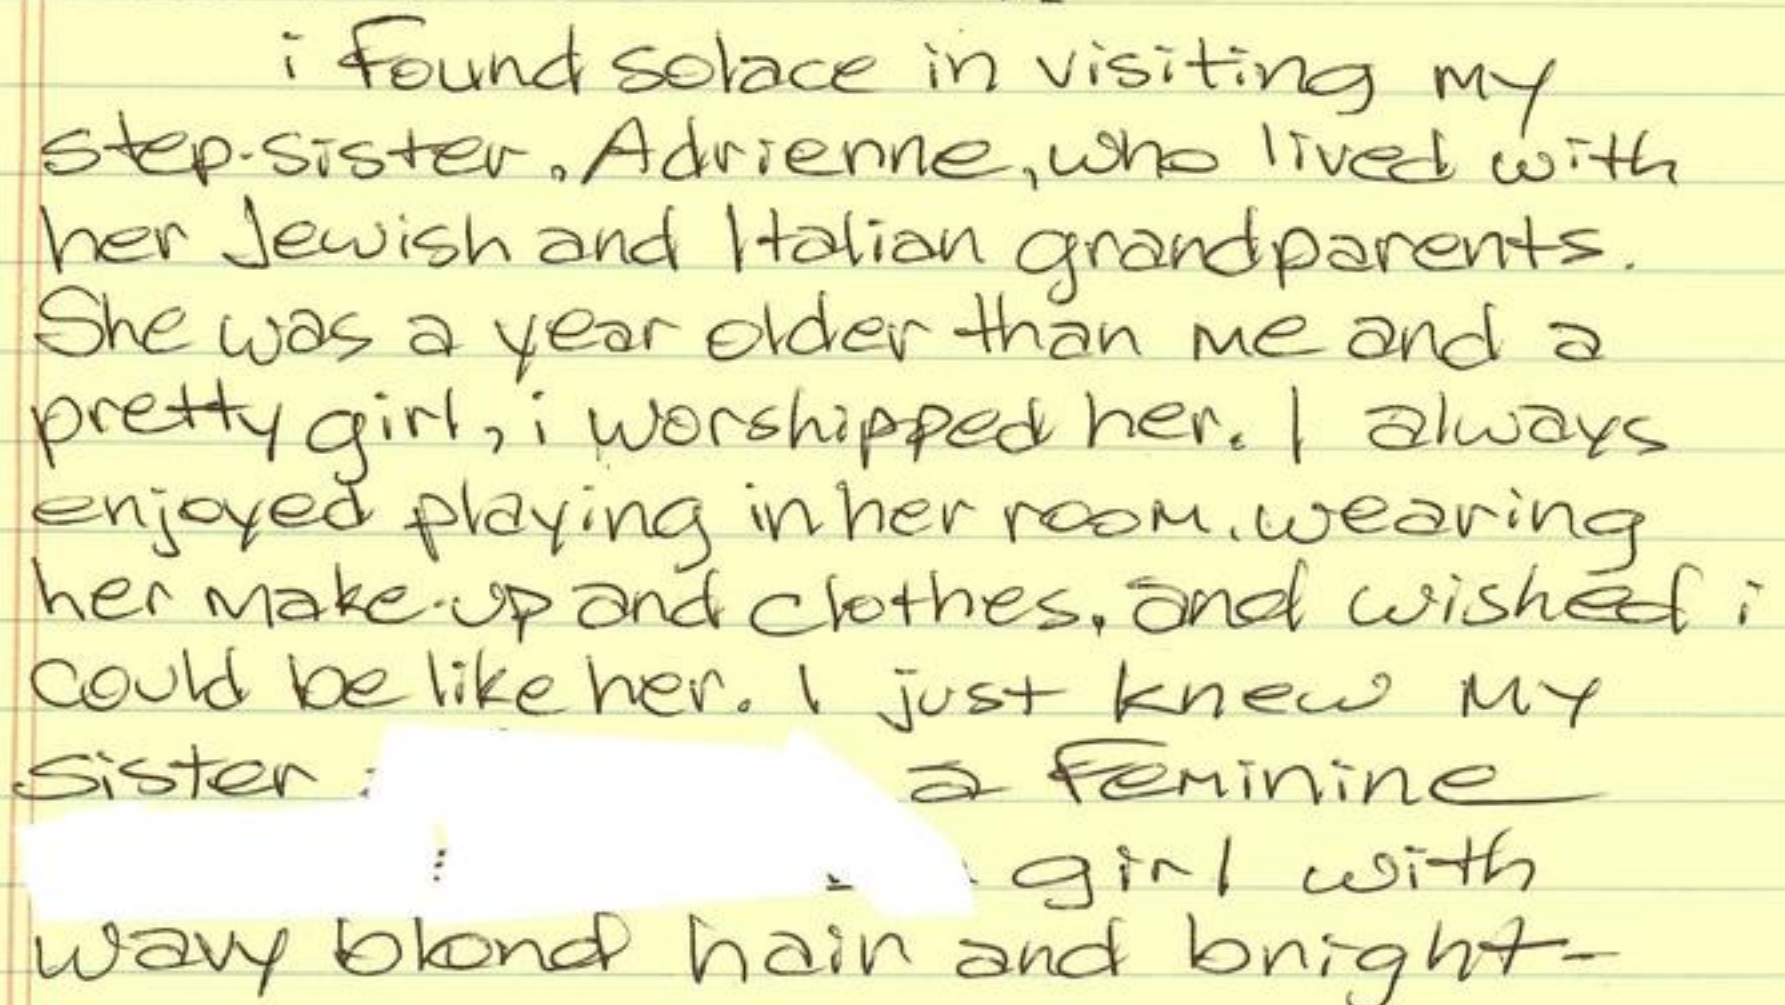 i found solace in visiting my
step-sister, Adrienne, who lived with
her Jewish and Italian grandparents.
She was a year older than me and a
pretty girl, i worshipped her. I always
enjoyed playing in her room, wearing
her make-up and clothes, and wished i
could be like her. I just knew my
sister a feminine
girl with
wavy blond hair and bright-